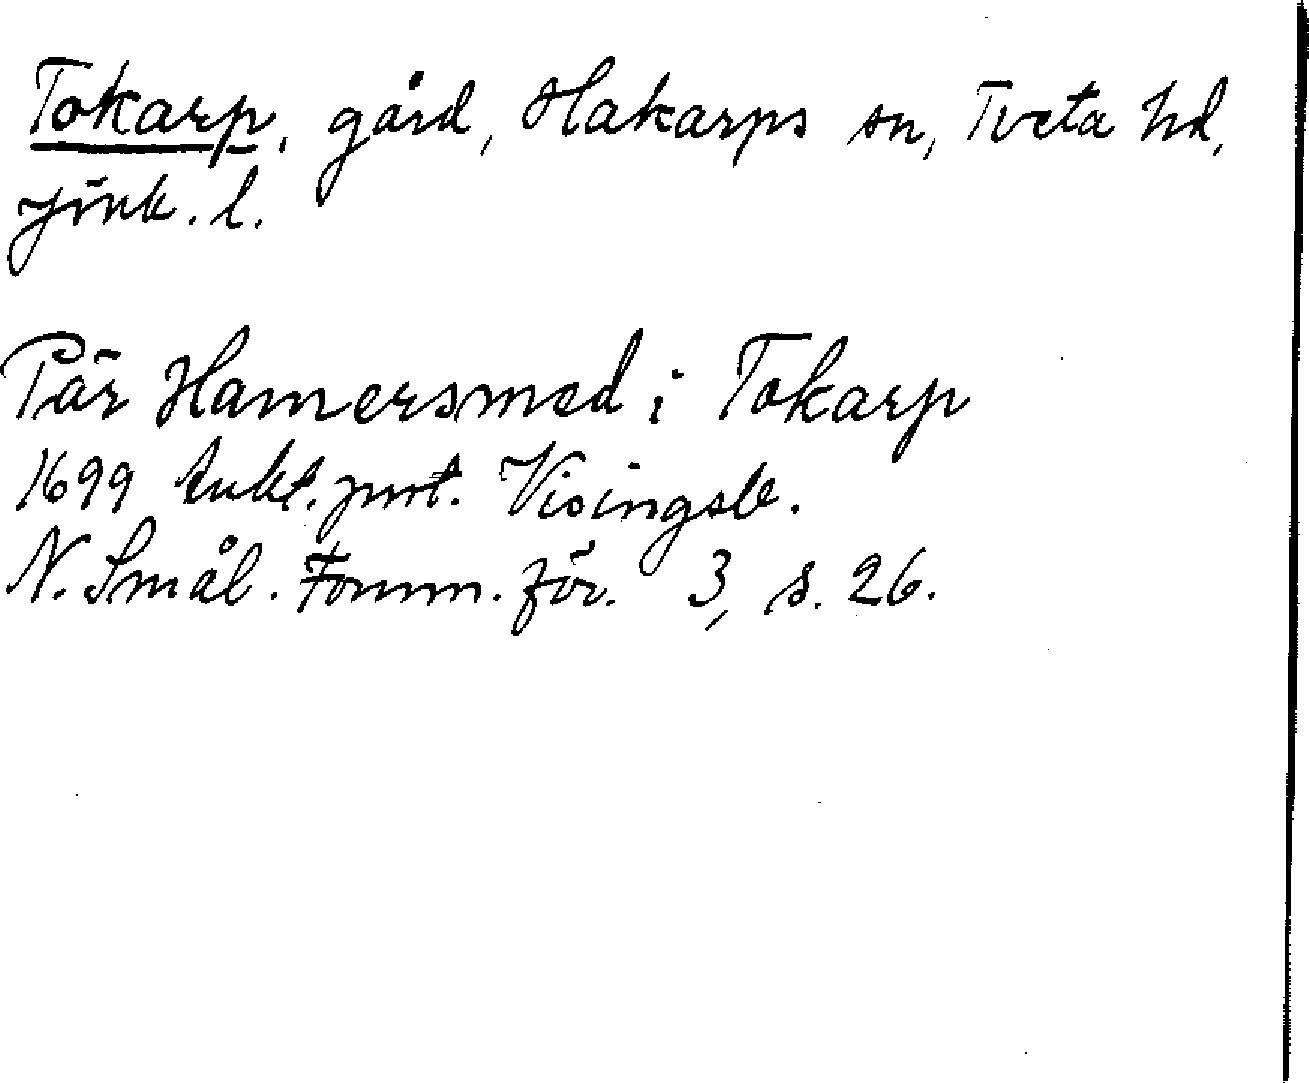 Tokarp, gård, Hakarps sn, Tveta hd,
jönk. l.
Pär Hamersmed i Tokarp
1699 Aukt. prot. Visingsb.
N. Smål. Fornm. för. 3, s. 26.